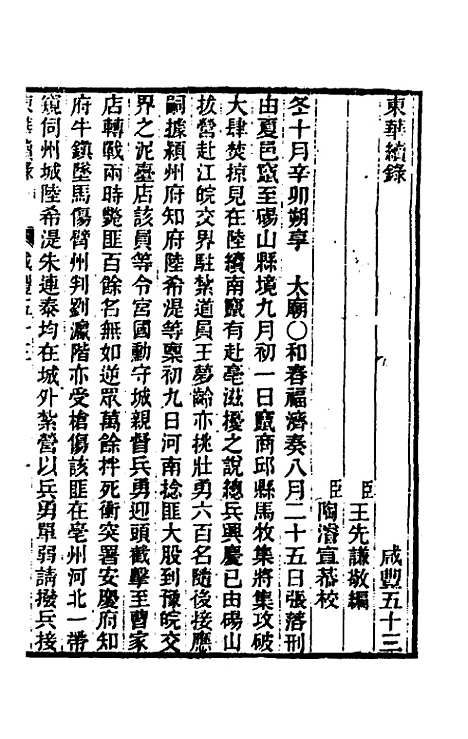 東華續錄　咸豐五十三
臣王先謙敬編
臣陶濬宣恭校
冬十月辛卯朔享　太廟○和春福濟奏八月二十五日張落刑
由夏邑竄至碭山縣境九月初一日竄商邱縣馬牧集將集攻破
大肆焚掠見在陸續南竄有赴亳滋擾之說總兵興慶已由碭山
拔營赴江皖交界駐紮道員王夢齡亦挑壯勇六百名隨後接應
嗣據潁州府知府陸希湜等稟初九日河南捻匪大股到豫皖交
界之泥臺店該員等令宮國勳守城親督兵勇迎頭截擊至曹家
店轉戰兩時斃匪百餘名無如逆眾萬餘拌死衝突署安慶府知
府牛鎮墜馬傷臂州判劉瀛階亦受槍傷該匪在亳州河北一帶
窺伺州城陸希湜朱連泰均在城外紮營以兵勇單弱請撥兵接
東華續錄　咸豐五十三　一